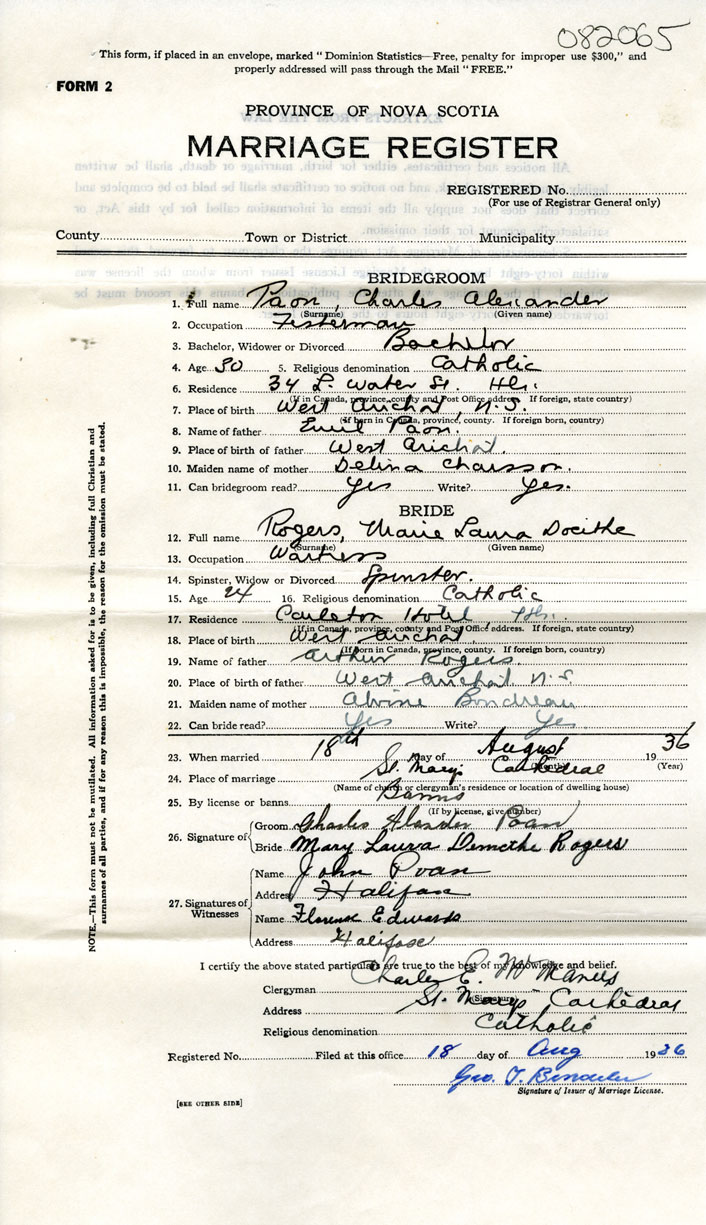 082065
This form, if placed in an envelope, marked "Dominion Statistics—Free, penalty for improper use $300," and
properly addressed will pass through the Mail "FREE."
FORM 2
PROVINCE OF NOVA SCOTIA
MARRIAGE REGISTER
REGISTERED No.
(For use of Registrar General only)
County Town or District Municipality
BRIDEGROOM
1. Full name Paon, Charles Alexander
(Surname) (Given name)
2. Occupation Fisherman
3. Bachelor, Widower or Divorced Bachelor
4. Age 30 5. Religious denomination Catholic
6. Residence 34 L. Water St. Hfx.
(If in Canada, province, county and Post Office address. If foreign, state country)
7. Place of birth West Arichat, N.S.
(If born in Canada, province, county. If foreign born, country)
8. Name of father Emil Paon.
9. Place of birth of father West Arichat.
10. Maiden name of mother Delina Chaisson.
11. Can bridegroom read? Yes Write? Yes.
BRIDE
12. Full name Rogers, Marie Laura Docithe
(Surname) (Given name)
13. Occupation Waitress
14. Spinster, Widow or Divorced Spinster.
15. Age 24 16. Religious denomination Catholic
17. Residence Carleton Hotel, Hfx.
(If in Canada, province, county and Post Office address. If foreign, state country)
18. Place of birth West Arichat
(If born in Canada, province, county. If foreign born, country)
19. Name of father Arthur Rogers.
20. Place of birth of father West Arichat N.S
21. Maiden name of mother Alvine Boudreau
22. Can bride read? Yes Write? Yes
23. When married 18th day of August 1936
(Month) (Year)
24. Place of marriage St. Mary's Cathedral
(Name of church or clergyman's residence or location of dwelling house)
25. By license or banns Banns
(If by license, give number)
26. Signature of Groom Charles Alander Poan
Bride Mary Laura Demethe Rogers
27. Signatures of Witnesses
Name John Poan
Address Halifax
Name Florence Edwards
Address Halifax
I certify the above stated particulars are true to the best of my knowledge and belief.
Clergyman Charles E. McManus
(Signature)
Address St. Mary's Cathedral
Religious denomination Catholic
Registered No. Filed at this office 18 day of Aug 1936
Geo. T.
Signature of Issuer of Marriage License.
[SEE OTHER SIDE]
NOTE.—This form must not be mutilated. All information asked for is to be given, including full Christian and
surnames of all parties, and if for any reason this is impossible, the reason for the omission must be stated.